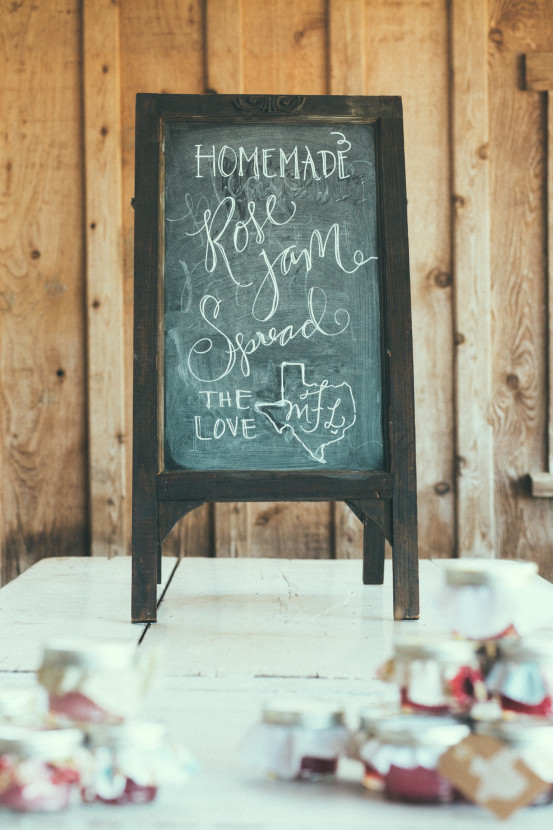 HOMEMADE
Rose
Jam
Spread
THE
LOVE